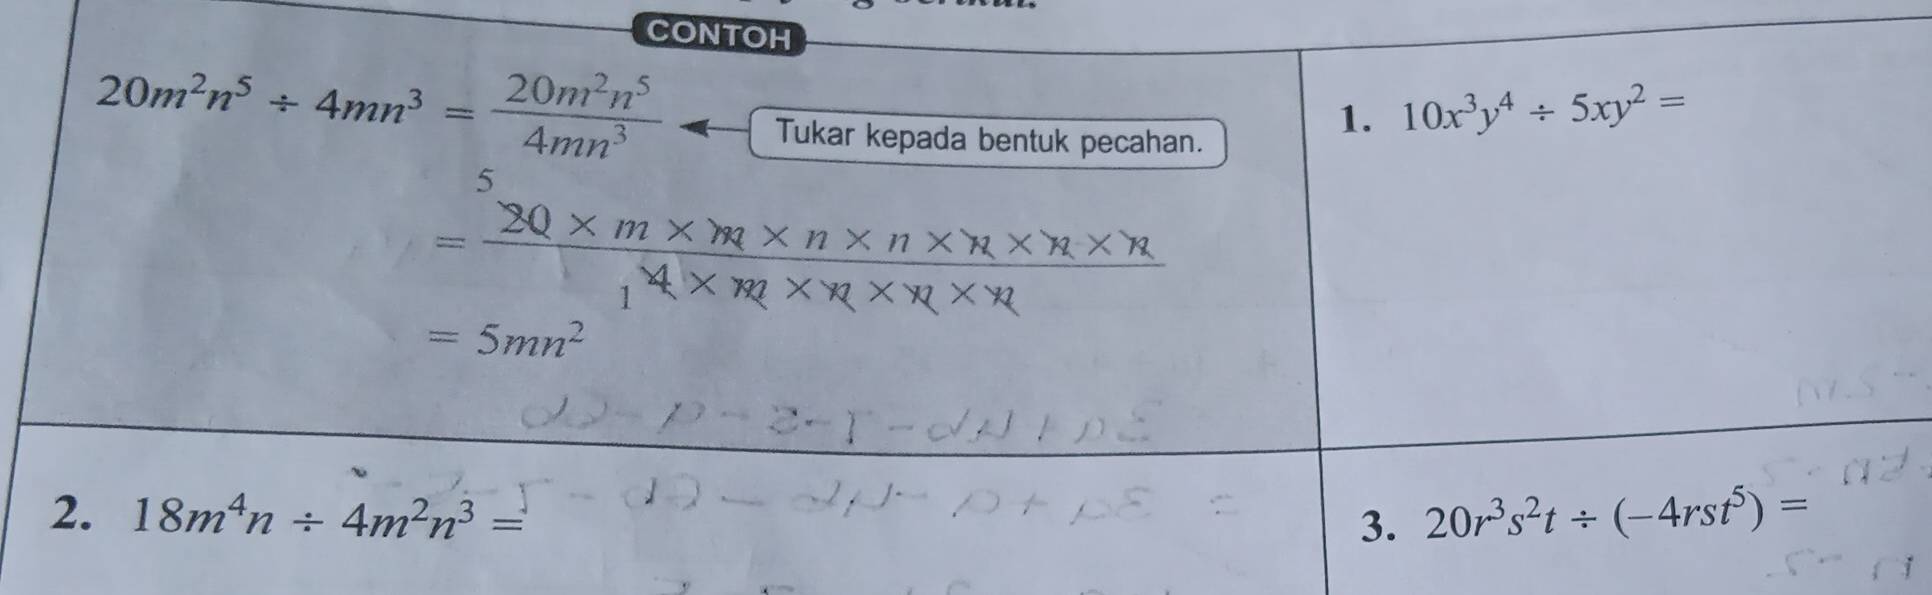 CONTOH
20m²n⁵ ÷ 4mn³ = 20m²n⁵ / 4mn³
Tukar kepada bentuk pecahan.
= ⁵20 × m × m × n × n × n × n × n / ₁4 × m × n × n × n
= 5mn²
1. 10x³y⁴ ÷ 5xy² =
2. 18m⁴n ÷ 4m²n³ =
3. 20r³s²t ÷ (−4rst⁵) =